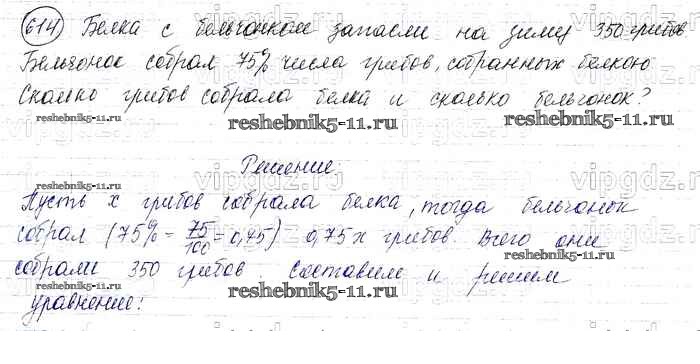 614 Белка с бельчонком запасли на зиму 350 грибов
Бельчонок собрал 75% числа грибов, собранных белкою
Сколько грибов собрала белка и сколько бельчонок?
reshebnik5-11.ru reshebnik5-11.ru
Решение:
vipgdz.ru
reshebnik5-11.ru
Пусть x грибов собрала белка, тогда бельчонок
собрал (75% = 75/100 = 0,75) 0,75x грибов. Всего они
собрали 350 грибов. Составим и решим
reshebnik5-11.ru
уравнение: